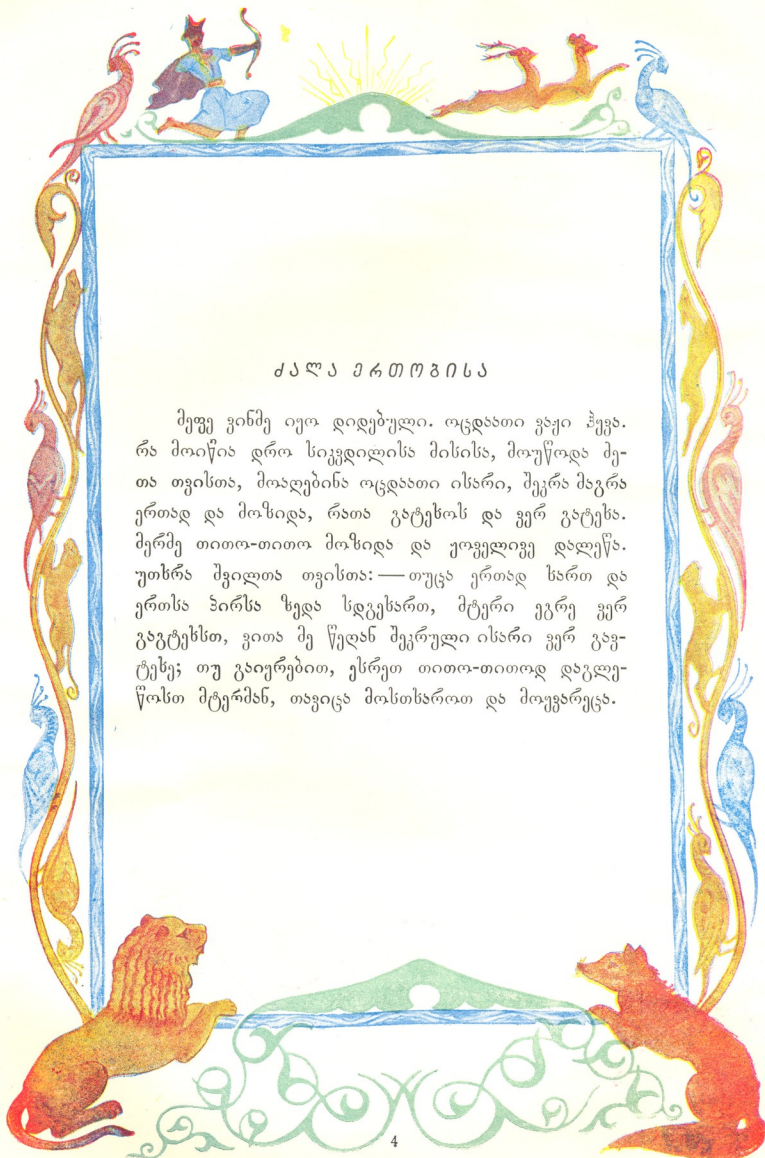 ძალა ერთობისა
მეფე ვინმე იყო დიდებული. ოცდაათი ვაჟი ჰყვა.
რა მოიწია დრო სიკვდილისა მისისა, მოუწოდა ძე-
თა თვისთა, მოაღებინა ოცდაათი ისარი, შეკრა მაგრა
ერთად და მოზიდა, რათა გატეხოს და ვერ გატეხა.
მერმე თითო-თითო მოზიდა და ყოველივე დალეწა.
უთხრა შვილთა თვისთა: — თუცა ერთად ხართ და
ერთსა პირსა ზედა სდგეხართ, მტერი ეგრე ვერ
გაგტეხსთ, ვითა მე წეღან შეკრული ისარი ვერ გავ-
ტეხე; თუ გაიყრებით, ესრეთ თითო-თითოდ დაგლე-
წოსთ მტერმან, თავიცა მოსთხაროთ და მოყვარეცა.
4